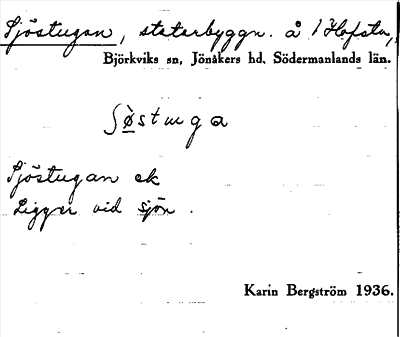 Sjöstugan, staterbyggn. å 1 Hofsta,
Björkviks sn, Jönåkers hd, Södermanlands län.
ʃø̀stuga
Sjöstugan ek
Ligger vid sjön.
Karin Bergström 1936.